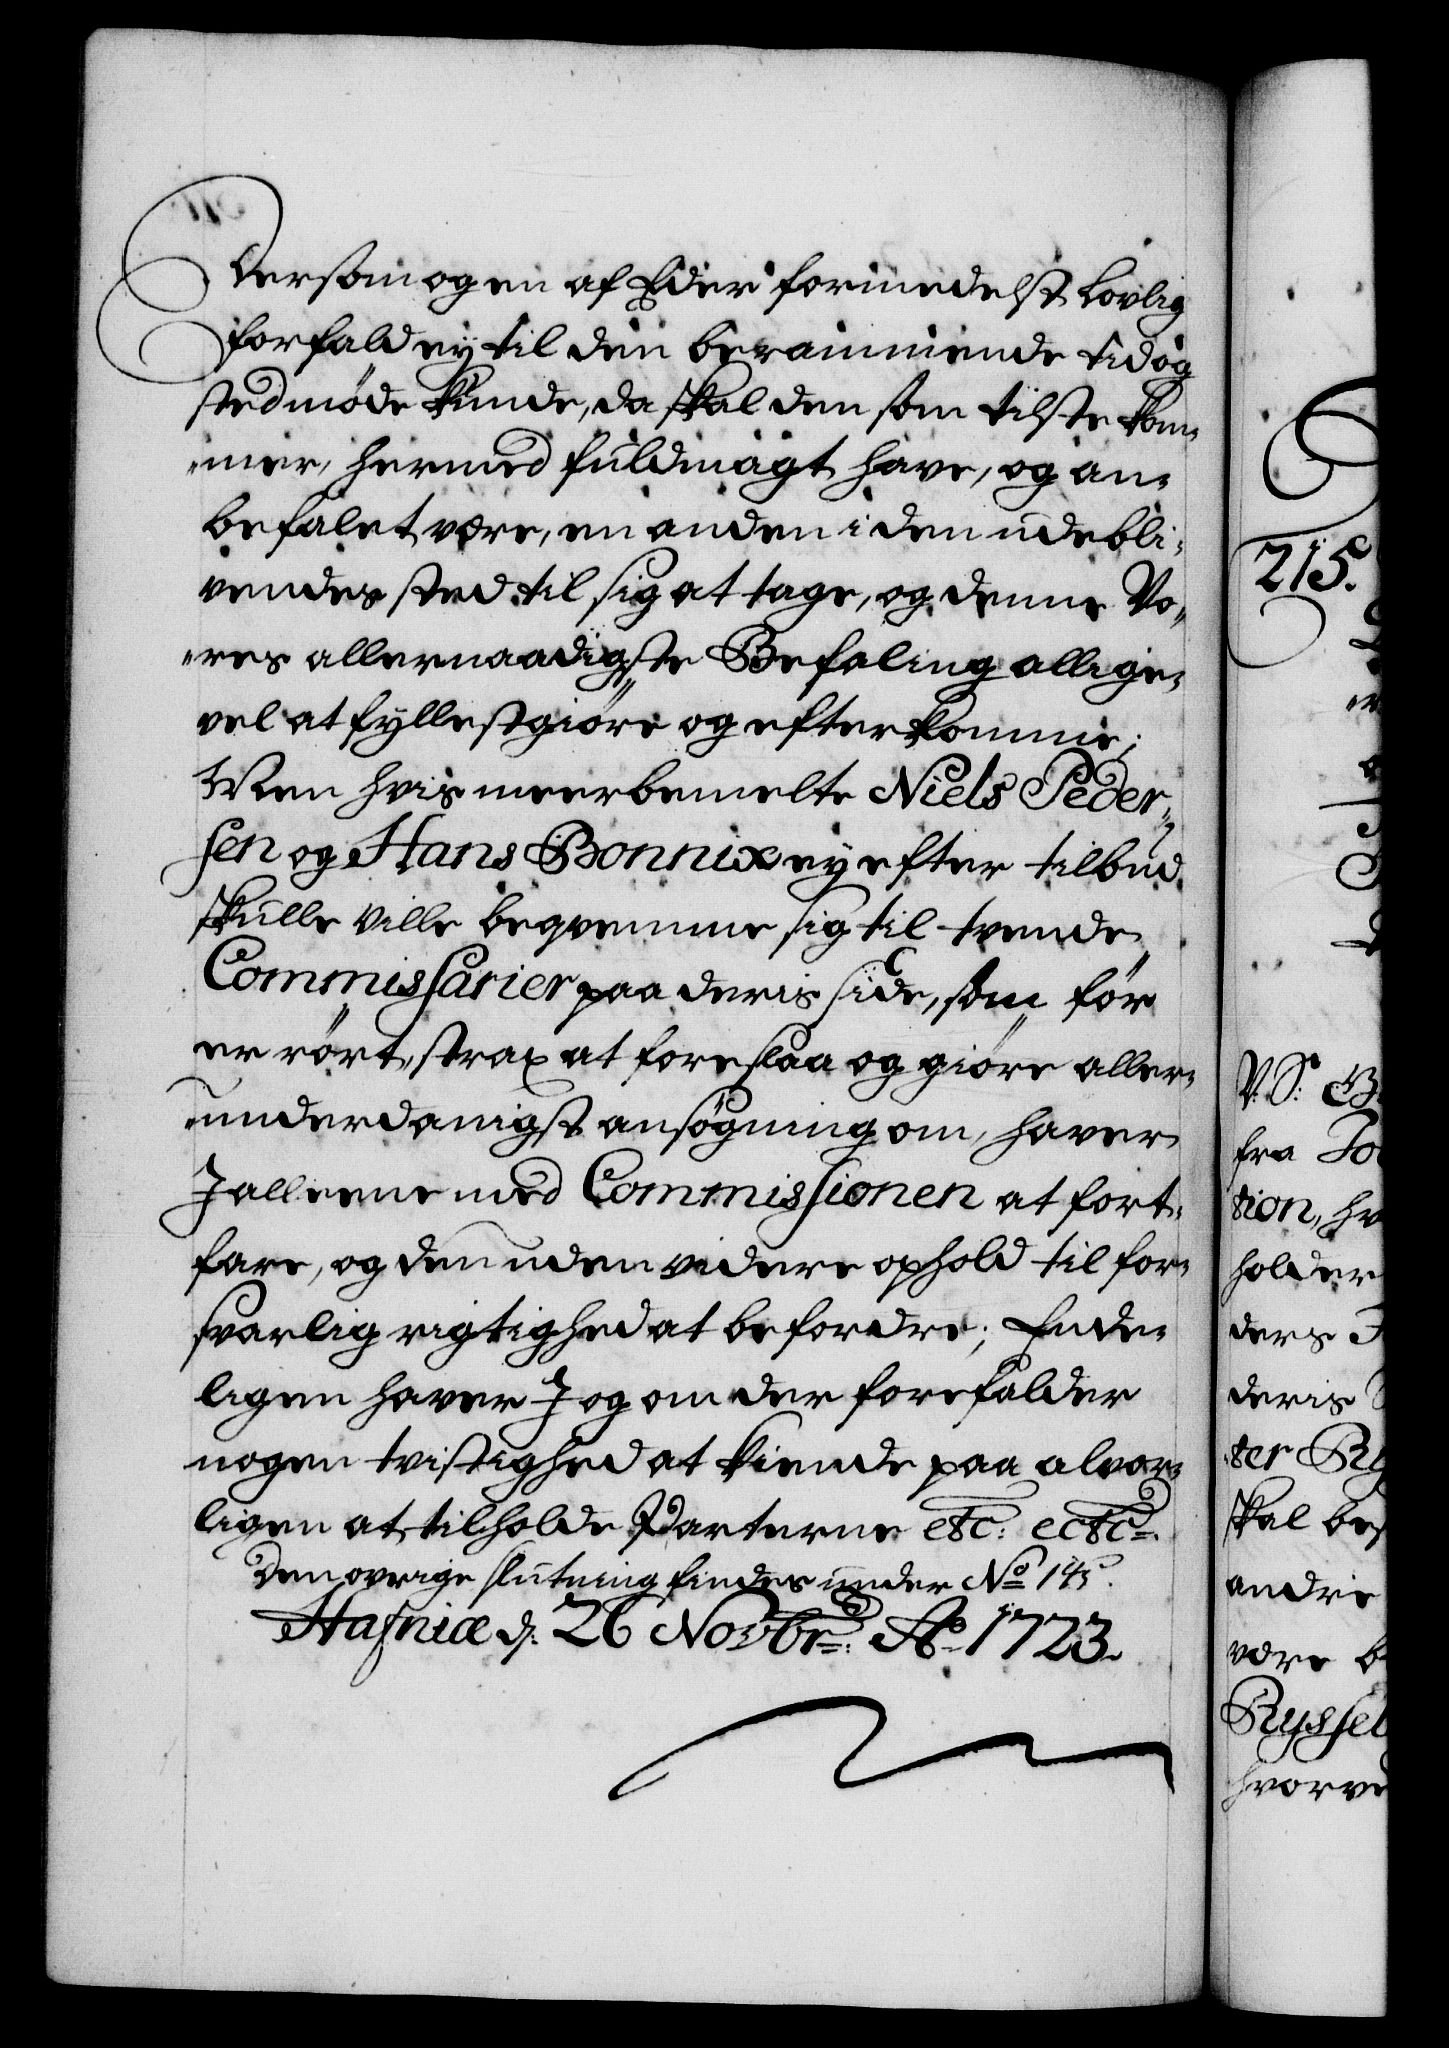 Dersom og en af Eder formedelst lovlig
forfald ey til den berammende tid og
sted møde kunde, da skal den som tilstede kom¬
mer, hermed fuldmagt have, og an¬
befalet være, en anden i den udebli¬
vendes sted til sig at tage, og denne Vo¬
res allernaadigste Befaling allige¬
vel at fyllestgiøre og efterkomme;
Men hvis meerbemelte Niels Peder¬
sen og Hans Bonnix ey efter tilbud
skulle ville beqvemme sig til tvende
Commissarier paa deris side, som før
er rørt, strax at foreslaa og giøre aller¬
underdanigst ansøgning om, haver
J alleene med Commissionen at fort¬
fare, og den uden videre ophold til for¬
svarlig rigtighed at befordre; Ende¬
ligen haver J og om der forefalder
nogen tvistighed at kiende paa alvor¬
ligen at tilholde Parterne etc: ectc.
Den øvrige slutning findes under No 145.
Hafniæ d: 26 Novbr: Ao 1723.
215.
V. S. G
fra
tion, hv
holder
ders
deris
ter Ry
skal bes
andre
være b
Ryssel
hvorve